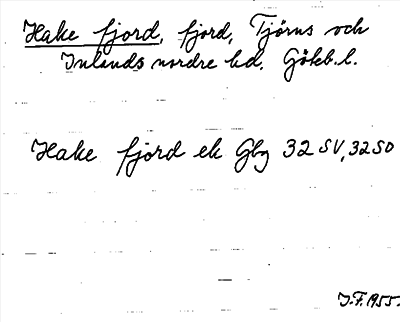 Hake fjord, fjord, Tjörns och
Inlands nordre hd, Göteb. l.
Hake fjord ek Gbg 32 SV, 32 SO
J.F. 1955.